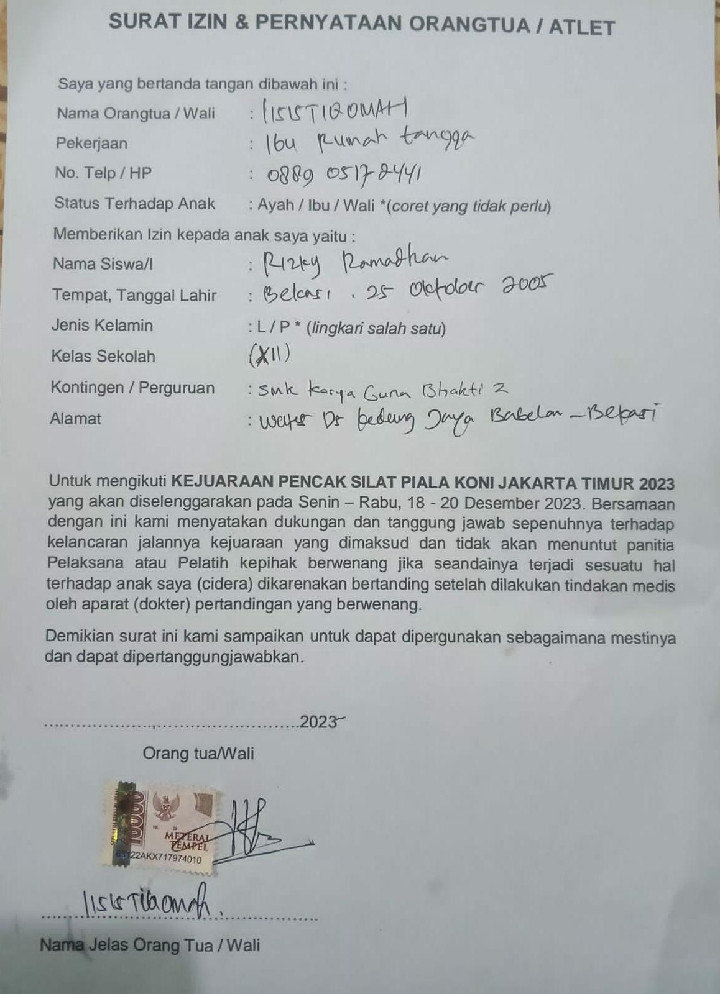 SURAT IZIN & PERNYATAAN ORANGTUA / ATLET
Saya yang bertanda tangan dibawah ini :
Nama Orangtua / Wali :
Pekerjaan : Ibu Rumah tangga
No. Telp / HP : 0889 0517 2441
Status Terhadap Anak : Ayah / Ibu / Wali *(coret yang tidak perlu)
Memberikan Izin kepada anak saya yaitu :
Nama Siswa/I : Rizky Ramadhan
Tempat, Tanggal Lahir : Bekasi, 25 Oktober 2005
Jenis Kelamin : L / P * (lingkari salah satu)
Kelas Sekolah (XII)
Kontingen / Perguruan : SMK Karya Guna Bhakti 2
Alamat : Jaya Babelan - Bekasi
Untuk mengikuti KEJUARAAN PENCAK SILAT PIALA KONI JAKARTA TIMUR 2023
yang akan diselenggarakan pada Senin – Rabu, 18 - 20 Desember 2023. Bersamaan
dengan ini kami menyatakan dukungan dan tanggung jawab sepenuhnya terhadap
kelancaran jalannya kejuaraan yang dimaksud dan tidak akan menuntut panitia
Pelaksana atau Pelatih kepihak berwenang jika seandainya terjadi sesuatu hal
terhadap anak saya (cidera) dikarenakan bertanding setelah dilakukan tindakan medis
oleh aparat (dokter) pertandingan yang berwenang.
Demikian surat ini kami sampaikan untuk dapat dipergunakan sebagaimana mestinya
dan dapat dipertanggungjawabkan.
2023
Orang tua/Wali
10000
METERAI
TEMPEL
22AKX717974010
Nama Jelas Orang Tua / Wali